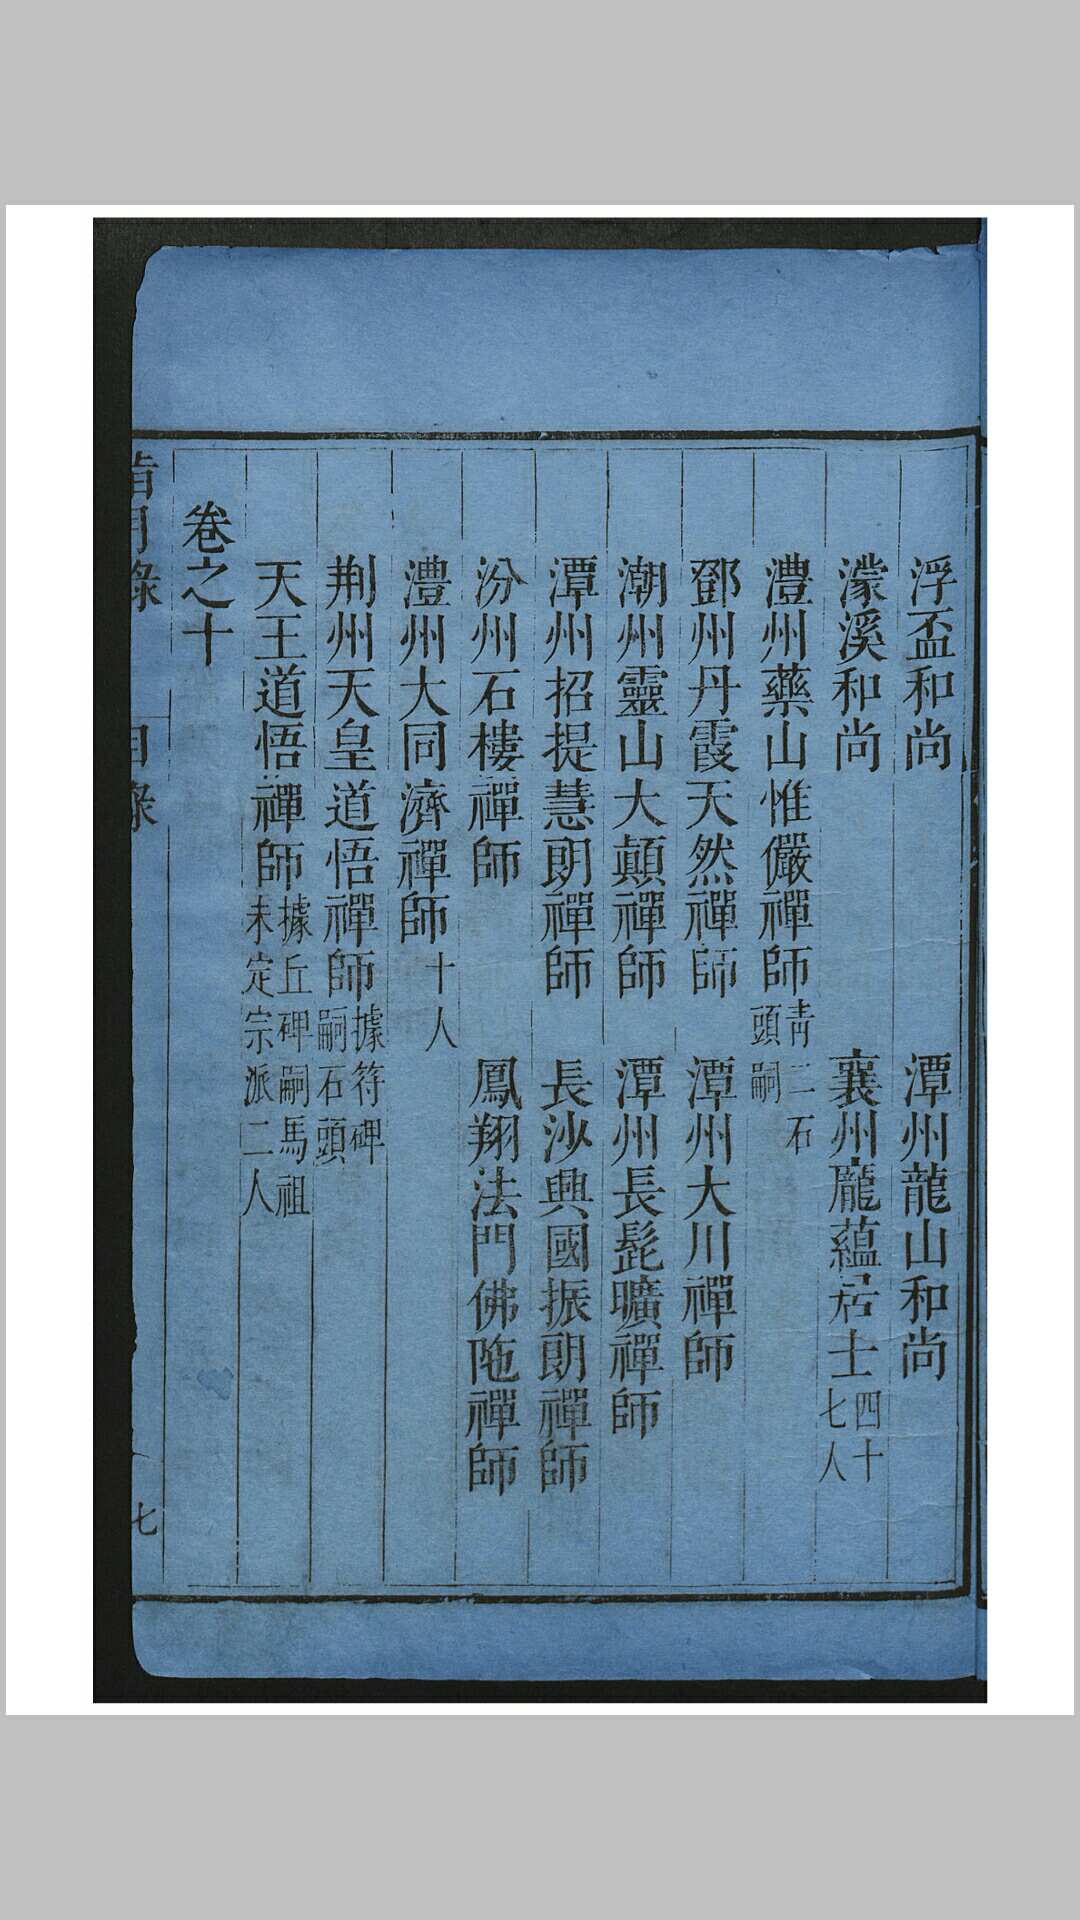 浮盃和尚　潭州龍山和尚
濛溪和尚　襄州龐蘊居士四十七人
澧州藥山惟儼禪師青二石頭嗣
鄧州丹霞天然禪師　潭州大川禪師
潮州靈山大顛禪師　潭州長髭曠禪師
潭州招提慧朗禪師　長沙興國振朗禪師
汾州石樓禪師　鳳翔法門佛陁禪師
澧州大同濟禪師十人
荆州天皇道悟禪師據符碑嗣石頭
天王道悟禪師據丘碑嗣馬祖未定宗派二人
卷之十
指月錄　目錄　七